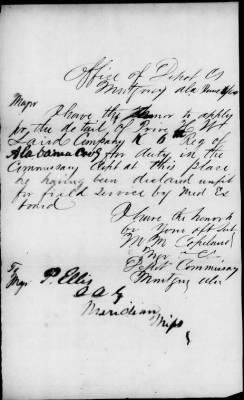 Office of Depot CS
Montgomery ala
Major
I have the honor to apply
for the detail of Priv
Laird Company K 6 Reg of
Alabama Cavy for duty in the
Commissary Dept at this place
he having been declared unfit
for field service by Med Ex
board
I have the honor to
be Your obt Sert
M M Copeland
Major CS
Depot Commissary
Montgy ala
To
Major P. Ellis
A A G
Meridian
Miss